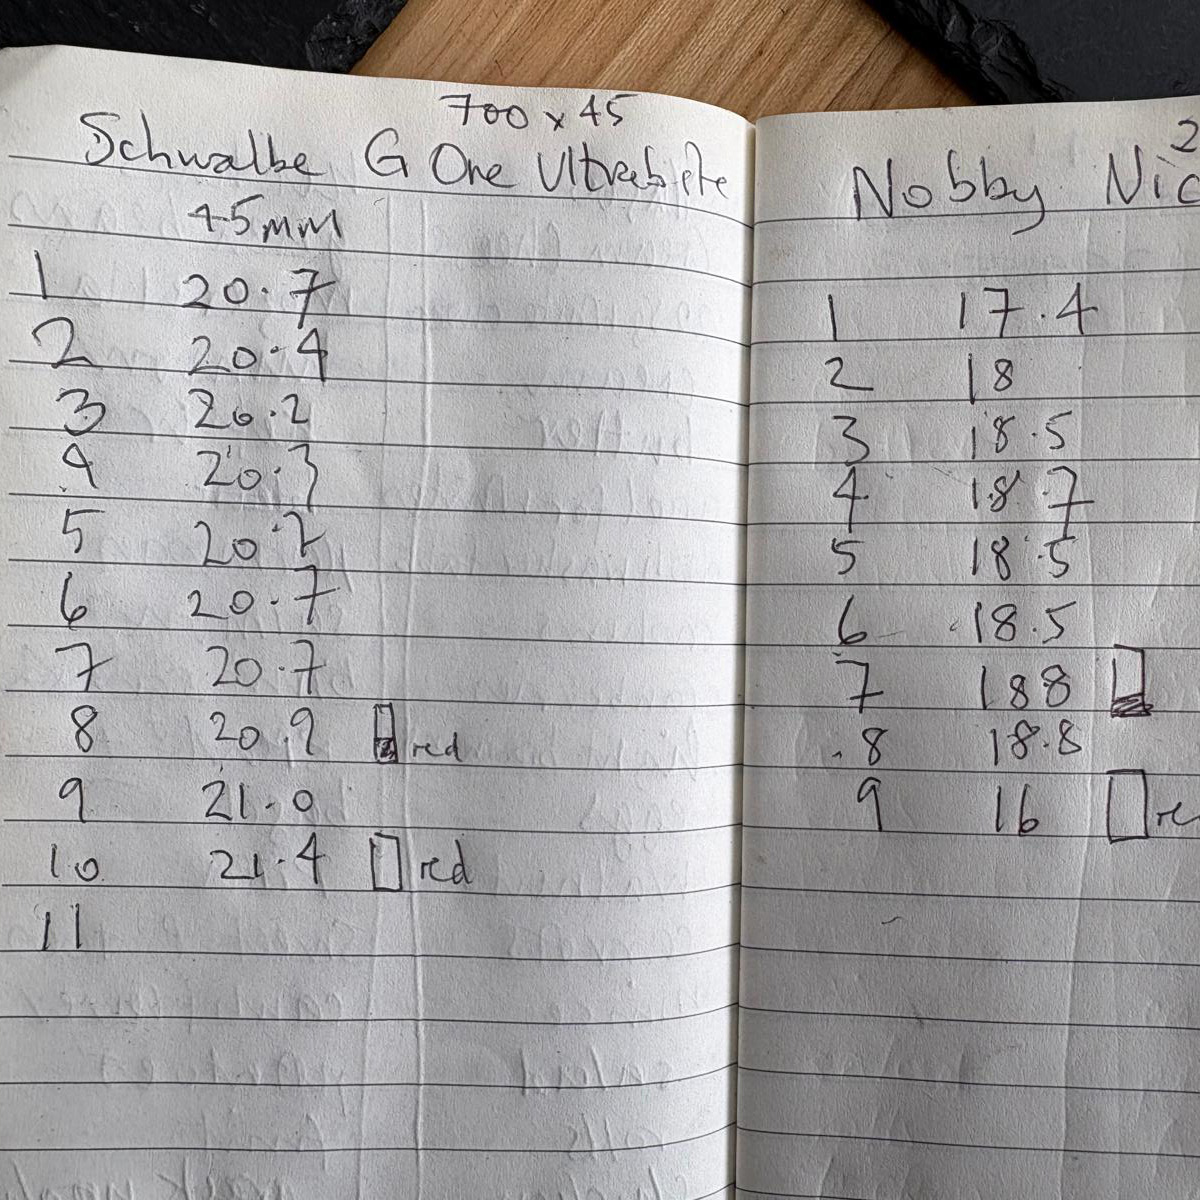 700 x 45
Schwalbe G One Ultrabite
45mm
1 20.7
2 20.4
3 20.2
4 20.3
5 20.2
6 20.7
7 20.7
8 20.9 red
9 21.0
10 21.4 red
11
2
Nobby Nic
1 17.4
2 18
3 18.5
4 18.7
5 18.5
6 18.5
7 188
8 18.8
9 16 re